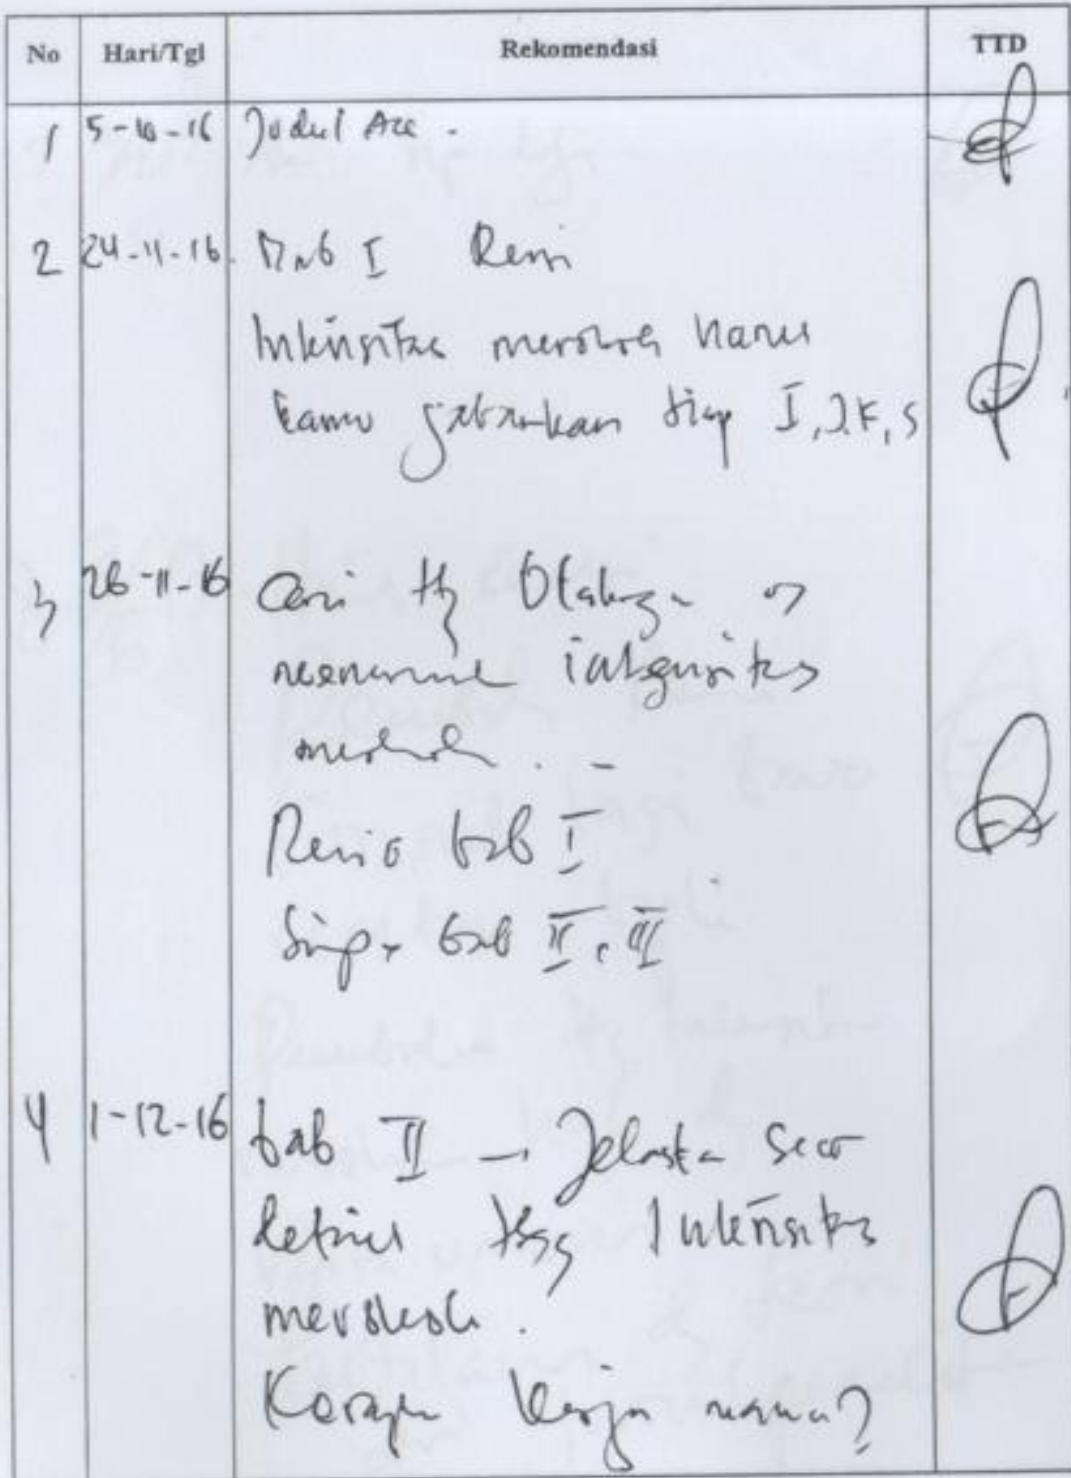 No Hari/Tgl Rekomendasi TTD
1 5-10-16 Judul Acc.
2 24-11-16. Bab I Revisi
Intensitas merokok harus
kamu jabarkan tiap I, JK, S
3 26-11-16 Cari ttg
intensitas
merokok. -
Revisi bab I
Siapkan bab II, III
4 1-12-16 bab II → Jelaskan secara
detail ttg Intensitas
merokok.
Kerangka kerja mana?